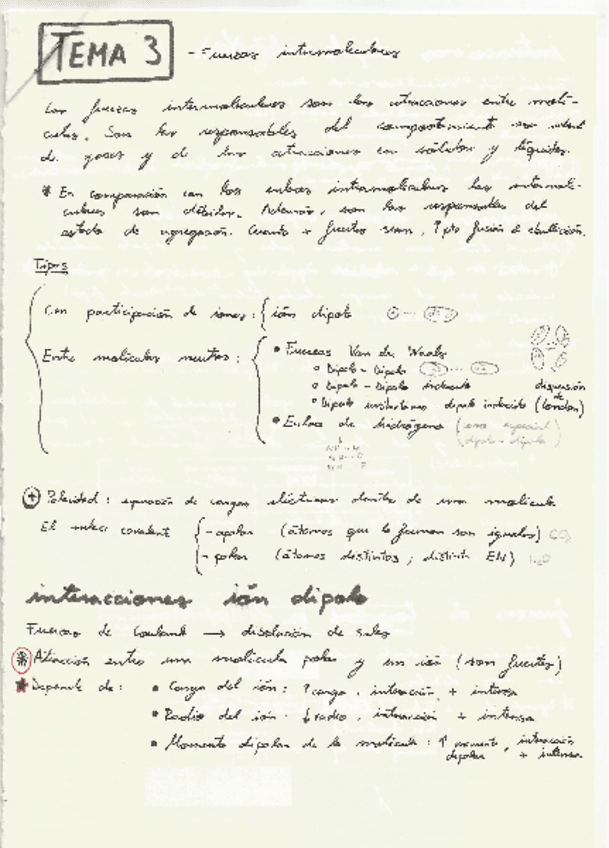 TEMA 3 - Fuerzas intermoleculares
Las fuerzas intermoleculares son las atracciones entre molé-
culas. Son las responsables del comportamiento no ideal
de gases y de las atracciones en sólidos y líquidos.
* En comparación con los enlaces intramoleculares las intermole-
culares son débiles. Además, son las responsables del
estado de agregación. Cuanto + fuertes sean, ↑ pto fusión o ebullición.
Tipos
Con participación de iones: ión dipolo
Entre moléculas neutras:
• Fuerzas Van de Waals
Dipolo - Dipolo
Dipolo - Dipolo inducido
Dipolo instantáneo dipolo inducido (London)
dispersión de
• Enlace de hidrógeno (caso especial
dipolo - dipolo)
Polaridad: separación de cargas eléctricas dentro de una molécula
El enlace covalente
- apolar (átomos que lo forman son iguales)
- polar (átomos distintos; distinta EN) H₂O
interacciones ión dipolo
Fuerzas de Coulomb → disolución de sales
* Atracción entre una molécula polar y un ión (son fuertes)
★ Depende de: • Carga del ión: ↑ carga, interacción + intensa
• Radio del ión: ↓ radio, interacción + intensa
• Momento dipolar de la molécula: ↑ momento dipolar, interacción + intensa